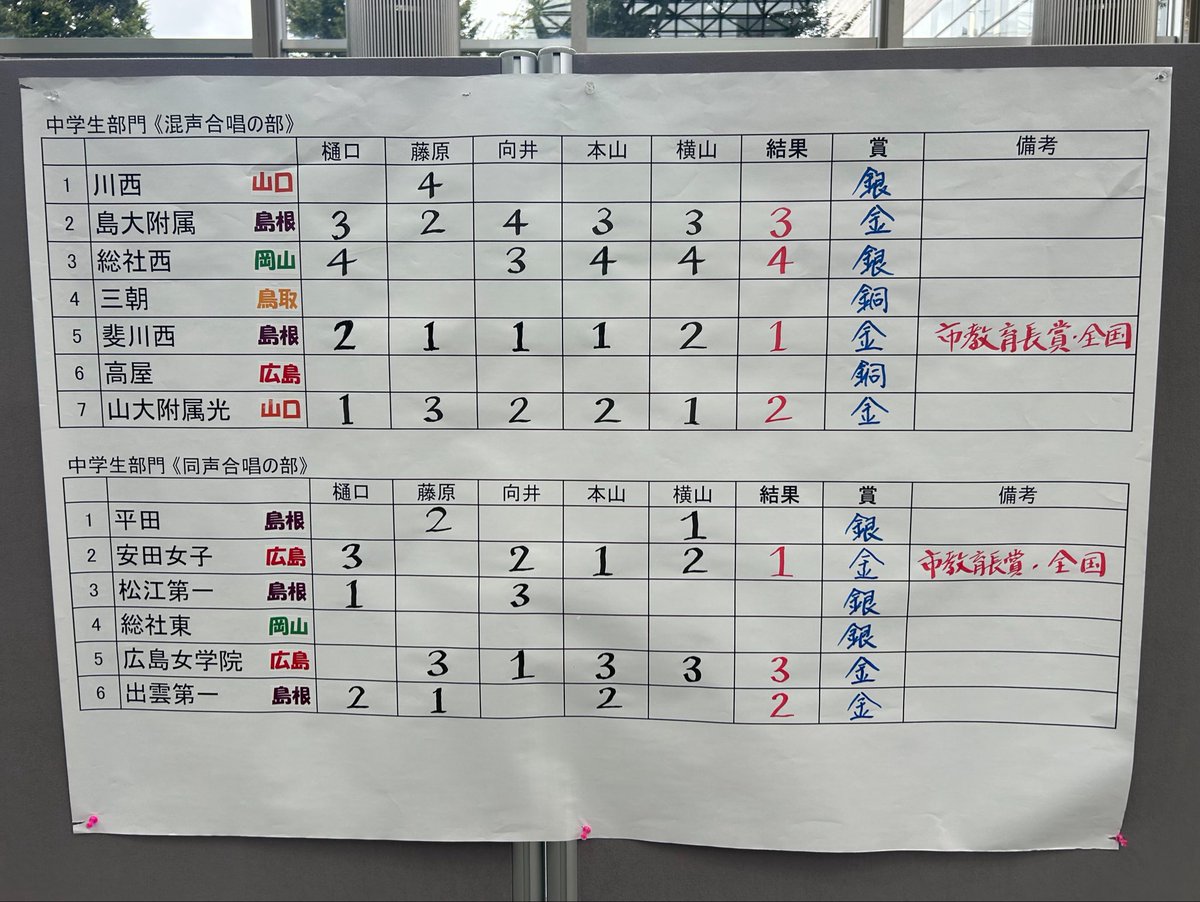 中学生部門《混声合唱の部》
樋口 藤原 向井 本山 横山 結果 賞 備考
1 川西 山口 4 銀
2 島大附属 島根 3 2 4 3 3 3 金
3 総社西 岡山 4 3 4 4 4 銀
4 三朝 鳥取 銅
5 斐川西 島根 2 1 1 1 2 1 金 市教育長賞・全国
6 高屋 広島 銅
7 山大附属光 山口 1 3 2 2 1 2 金
中学生部門《同声合唱の部》
樋口 藤原 向井 本山 横山 結果 賞 備考
1 平田 島根 2 1 銀
2 安田女子 広島 3 2 1 2 1 金 市教育長賞・全国
3 松江第一 島根 1 3 銀
4 総社東 岡山 銀
5 広島女学院 広島 3 1 3 3 3 金
6 出雲第一 島根 2 1 2 2 金